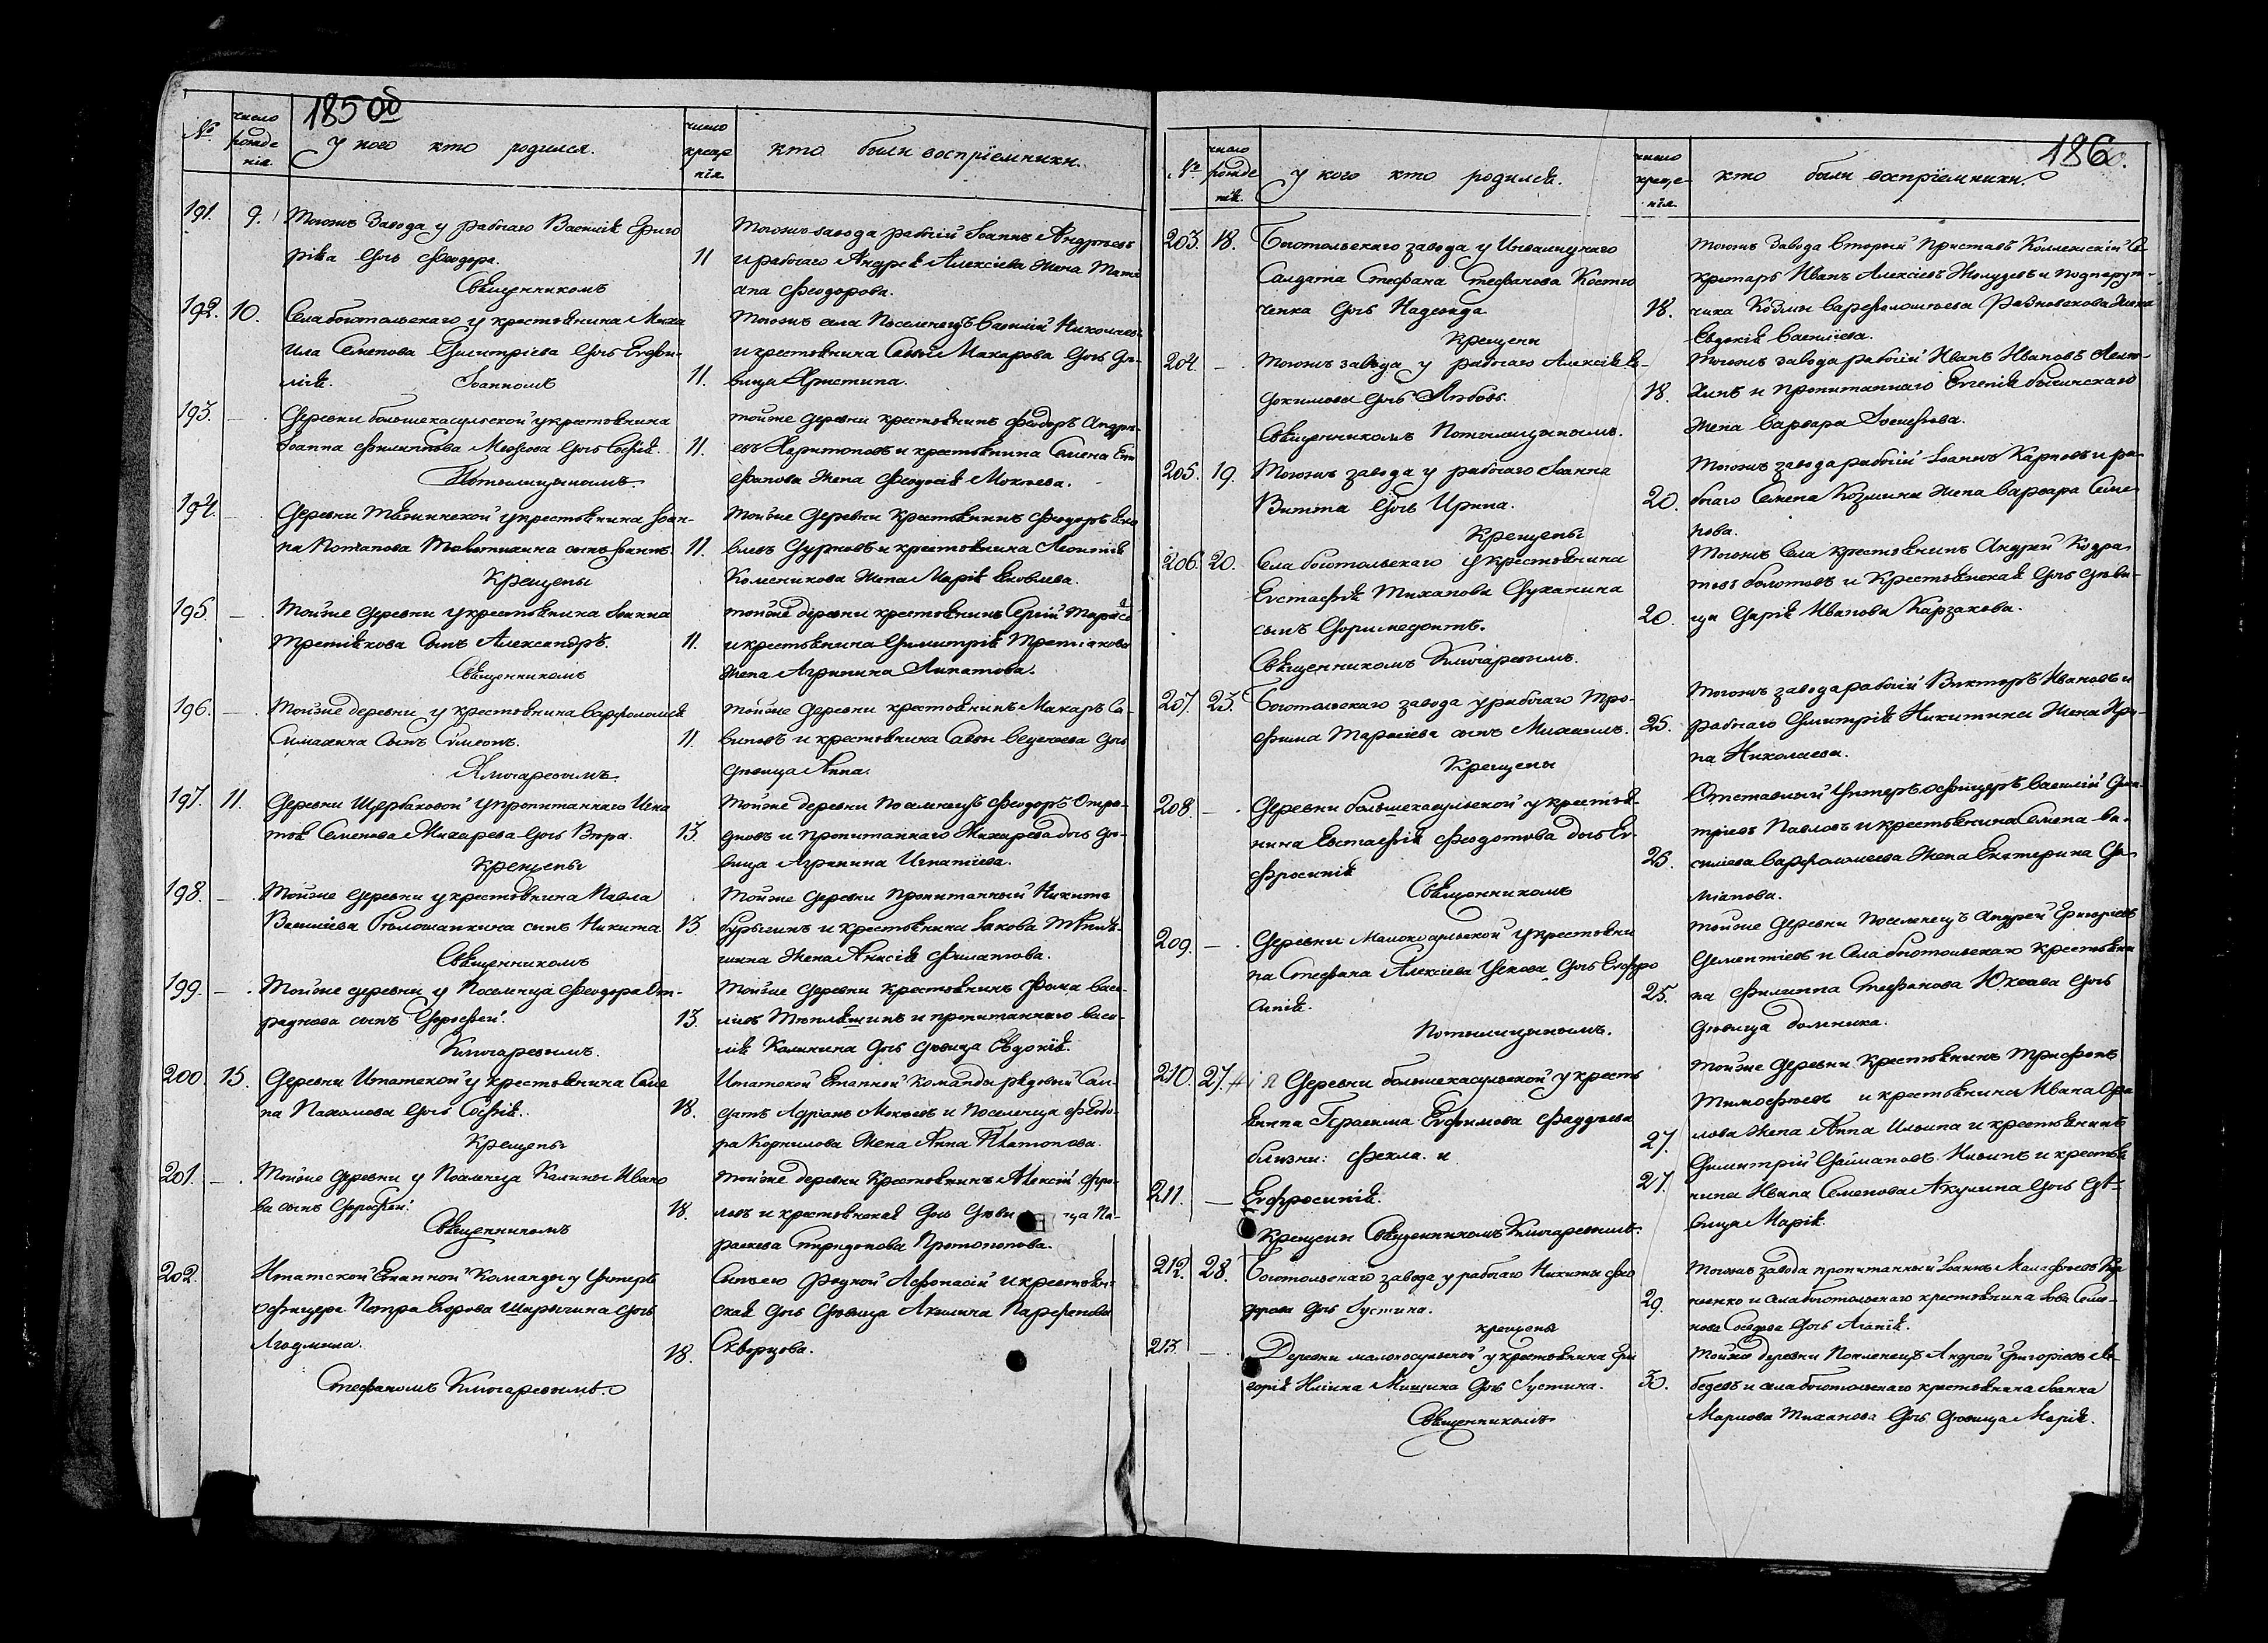 1850 об
№
число рожде нія.
У кого кто родился.
число креще нія.
кто были воспріемники.
191. 9. Тогожъ Завода у рабочаго Василія Григо
рьева дочь Феодора.
Священникомъ
11
Тогожъ завода рабочій Іоаннъ Андреевъ
и рабочаго Андрея Алексіева жена Тати
ана Феодорова.
192. 10. Села боготольскаго у крестьянина Миха
ила Семенова Димитріева дочь Евфи-
мія. Іоанномъ
11.
Тогожъ села Поселенецъ Василій Николаевъ
и крестьянина Саввы Макарова дочь дѣ-
вица Христина.
193. Деревни большекасульской у крестьянина
Іоанна Филиппова дочь Софія.
Потылицынымъ.
11.
тойже деревни крестьянинъ Феодоръ Андре-
евъ Харитоновъ и крестьянина Семена Епи
фанова жена Феодосія Мокѣева.
194. Деревни у крестьянина Іоан-
на Потапова сынъ Іоаннъ
Крещены
11.
Тойже деревни Крестьянинъ Феодоръ Яко
влевъ и крестьянина Леонтія
Колесникова жена Марія Яковлева.
195. Тойже деревни у крестьянина Іоанна
Третьякова сынъ Александръ.
Священникомъ
11.
тойже деревни крестьянинъ Сергій
и крестьянина Димитрія Третьякова
жена Агрипина Липатова.
196. Тойже деревни у крестьянина Варфоломея
Симахина сынъ Симеонъ.
Ключаревымъ.
11.
тойже деревни крестьянинъ Макаръ Са-
виновъ и крестьянина Савы дочь
дѣвица Анна.
197. 11. Деревни Щербаковой у пропитаннаго Игна
тія Семенова Жихарева дочь Вѣра.
Крещены
13.
Тойже деревни Поселенецъ Феодоръ Отра-
дновъ и пропитаннаго Жихарева дочь дѣ-
вица Агрипина Игнатіева.
198. Тойже деревни у крестьянина Павла
Василіева сынъ Никита
Священникомъ
13.
Тойже деревни Пропитанный Никита
и крестьянина Іакова
жена Анисія Филатова.
199. Тойже деревни у Поселенца Феодора От-
раднова сынъ Дорофей.
Ключаревымъ.
13.
Тойже деревни Крестьянинъ Фома Васи-
ліевъ и пропитаннаго Васи-
лія Калинина дочь дѣвица Евдокія.
200. 15. Деревни Итатской у крестьянина Семе
на Пахомова дочь Софія.
Крещены
18.
Итатской Етапной Команды рядовый Сал-
датъ Адріанъ Мокѣевъ и Поселенца Феодо-
ра Корнилова жена Анна Платонова.
201. Тойже деревни у Поселенца Калины Ивано
ва сынъ Дорофей.
Священникомъ
18.
тойже деревни Крестьянинъ Алексій Фро-
ловъ и крестьянская дочь дѣвица Па-
раскева Спиридонова Протопопова.
202. Итатской Етапной Команды у Унтеръ
офицера Петра Егорова Шарыгина дочь
Людмила.
Стефаномъ Ключаревымъ.
18.
Сынъ его родной Афонасій и крестьян-
ская дочь дѣвица Акилина Парфенова
Скворцова.
186.
№
число рожде нія.
У кого кто родился.
число креще- нія.
кто были воспріемники.
203. 18. Боготольскаго завода у Инвалиднаго
Салдата Стефана Стефанова Костю
ченка дочь Надежда
Крещены
18.
Тогожъ Завода Вторый Приставъ Коллежскій Се
кретарь Иванъ Алексіевъ и подпоруч-
чика Козмы Варфоломѣева жена
Евдокія Василіева.
204. Тогожъ завода у рабочаго Алексія Ев-
докимова дочь Любовь.
Священникомъ Потылицынымъ.
18.
Тогожъ завода рабочій Иванъ Ивановъ
и пропитаннаго Евгенія
жена Варвара Іосифова.
205. 19. Тогожъ завода у рабочаго Іоанна
Витта дочь Ирина.
Крещены
20.
Тогожъ завода рабочій Іоаннъ Карповъ и ра-
бочаго Семена Козмина жена Варвара Семе-
нова.
206. 20. Села боготольскаго у крестьянина
Евстафія Тиханова Суханина
сынъ Доримедонтъ.
Священникомъ Ключаревымъ.
20.
Тогожъ Села крестьянинъ Андрей Кодра-
товъ Болотовъ и Крестьянская дочь дѣви-
ца Дарія Иванова Карзакова.
207. 23. Боготольскаго завода у рабочаго Тро-
фима Тарасіева сынъ Михаилъ.
Крещены
25.
Тогожъ завода рабочій Викторъ Ивановъ и
рабочаго Димитрія Никитина жена Ири-
на Николаева.
208. Деревни большекасульской у крестья-
нина Евстафія Федотова дочь Ев-
фросинія
Священникомъ
25.
Отставный Унтеръ офицеръ Василій Дми-
тріевъ Павловъ и крестьянина Семена Ва-
силіева Варфоломеева жена Екатерина Да-
міанова.
209. Деревни Малокосульской у крестьяни
на Стефана Алексіева дочь Евфро
синія.
Потылицынымъ.
25.
тойже деревни Поселенецъ Андрей Григоріевъ
Дементіевъ и Села боготольскаго крестьяни
на Филиппа Стефанова дочь
дѣвица Домника.
210. 27. Деревни большекасульской у кресть
янина Герасима Евфимова Фаддѣева
близни: Фекла. и
27.
Тойже деревни Крестьянинъ Трифонъ
Тимофѣевъ и крестьянина Ивана
жена Анна Ильина и крестьянинъ
211. Евфросинія.
Крещены Священникомъ Ключаревымъ.
27.
Димитрій и крестья
нина Ивана Семенова Акулина дочь дѣ-
вица Марія.
212. 28. Боготольскаго завода у рабочаго Никиты Фео
дорова дочь Іустина.
крещены
29.
Тогожъ завода пропитанный Іоаннъ Малафѣевъ
и села боготольскаго крестьянина Іова Семе-
нова дочь Агафія.
213. Деревни малокосульской у крестьянина Гри
горія Ильина Мишина дочь Іустина.
Священникомъ
30.
Тойже деревни Поселенецъ Андрей Григоріевъ Ле-
бедевъ и села боготольскаго крестьянина Іоанна
Тиханова дочь дѣвица Марія.